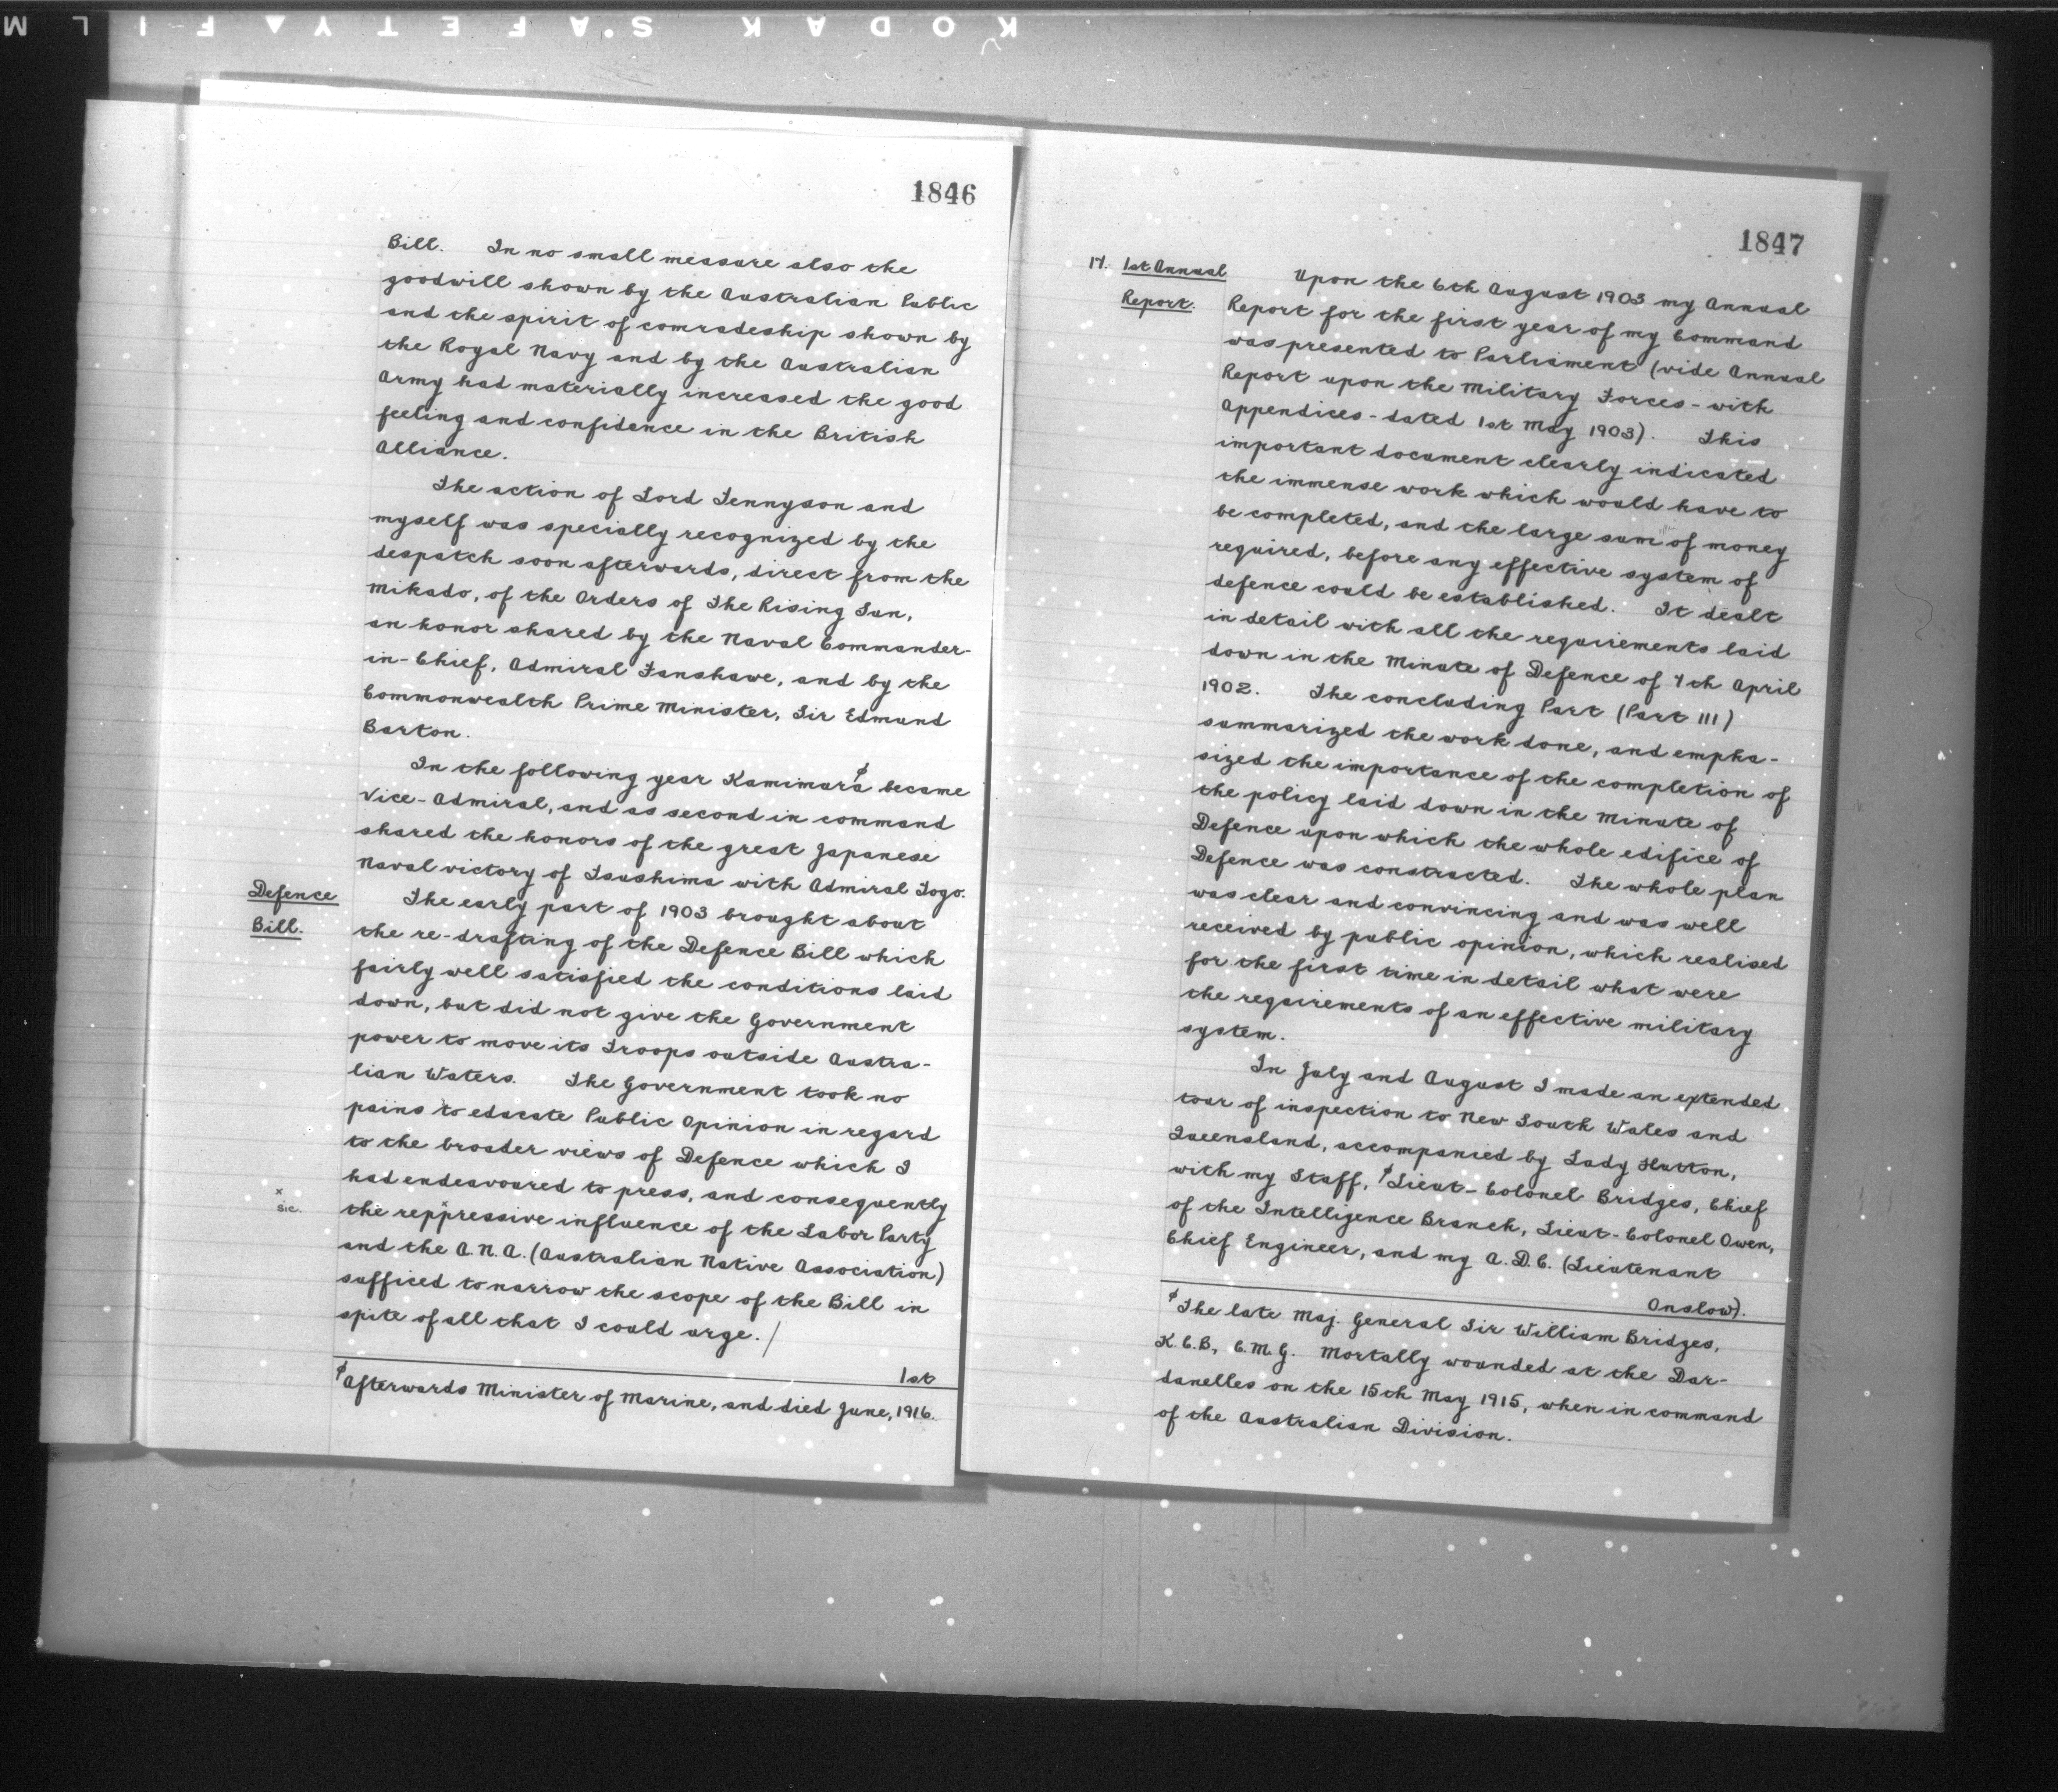 KODAK SAFETY FILM
1846
Bill. In no small measure also the
goodwill shown by the Australian Public
and the spirit of comradeship shown by
the Royal Navy and by the Australian
Army had materially increased the good
feeling and confidence in the British
Alliance.
The action of Lord Tennyson and
myself was specially recognized by the
despatch soon afterwards, direct from the
Mikado, of the Orders of The Rising Sun,
an honor shared by the Naval Commander-
in-Chief, Admiral Fanshawe, and by the
Commonwealth Prime Minister, Sir Edmund
Barton.
In the following year Kamimura ø became
Vice-Admiral, and as second in command
shared the honors of the great Japanese
Naval victory of Tsushima with Admiral Togo.
Defence
Bill.
The early part of 1903 brought about
the re-drafting of the Defence Bill which
fairly well satisfied the conditions laid
down, but did not give the Government
power to move its Troops outside Austra-
lian Waters. The Government took no
pains to educate Public Opinion in regard
to the broader views of Defence which I
had endeavoured to press, and consequently
x
sic.
the reppressive influence of the Labor Party
and the A.N.A. (Australian Native Association)
sufficed to narrow the scope of the Bill in
spite of all that I could urge. /
1st
ø Afterwards Minister of Marine, and died June, 1916.
1847
17. 1st Annual
Report.
Upon the 6th August 1903 my Annual
Report for the first year of my Command
was presented to Parliament (vide Annual
Report upon the Military Forces - with
Appendices - dated 1st May 1903). This
important document clearly indicated
the immense work which would have to
be completed, and the large sum of money
required, before any effective system of
defence could be established. It dealt
in detail with all the requirements laid
down in the Minute of Defence of 7th April
1902. The concluding Part (Part III)
summarized the work done, and empha-
sized the importance of the completion of
the policy laid down in the Minute of
Defence upon which the whole edifice of
Defence was constructed. The whole plan
was clear and convincing and was well
received by public opinion, which realised
for the first time in detail what were
the requirements of an effective military
system.
In July and August I made an extended
tour of inspection to New South Wales and
Queensland, accompanied by Lady Hutton,
with my Staff, ø Lieut-Colonel Bridges, Chief
of the Intelligence Branch, Lieut-Colonel Owen,
Chief Engineer, and my A.D.C. (Lieutenant
Onslow).
ø The late Maj. General Sir William Bridges,
K.C.B., C.M.G. Mortally wounded at the Dar-
danelles on the 15th May 1915, when in command
of the Australian Division.